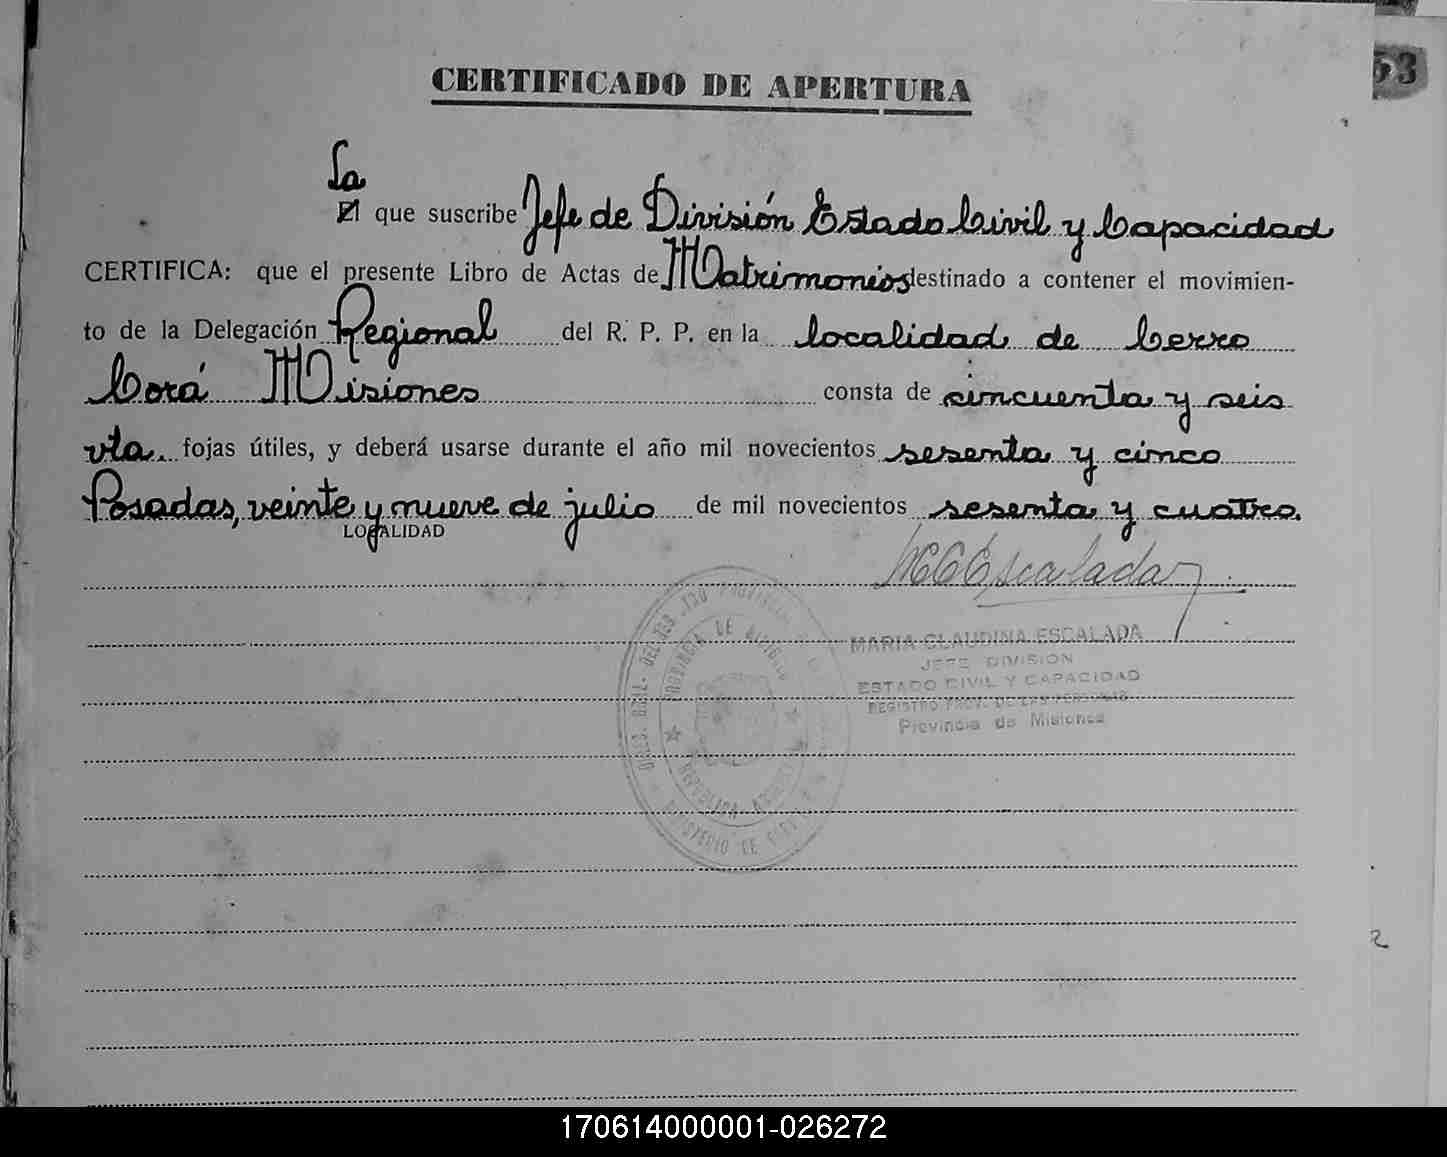 53
CERTIFICADO DE APERTURA
La
El que suscribe Jefe de División Estado Civil y Capacidad
CERTIFICA: que el presente Libro de Actas de Matrimonios destinado a contener el movimien-
to de la Delegación Regional del R. P. P. en la localidad de Cerro
Corá Misiones consta de cincuenta y seis
vta. fojas útiles, y deberá usarse durante el año mil novecientos sesenta y cinco
Posadas, veinte y nueve de julio de mil novecientos sesenta y cuatro.
LOCALIDAD
MCEscalada
MARIA CLAUDINA ESCALADA
JEFE DIVISION
ESTADO CIVIL Y CAPACIDAD
REGISTRO PROV. DE LAS PERSONAS
Provincia de Misiones
PROVINCIA DE MISIONES
REPUBLICA ARGENTINA
MINISTERIO DE
170614000001-026272